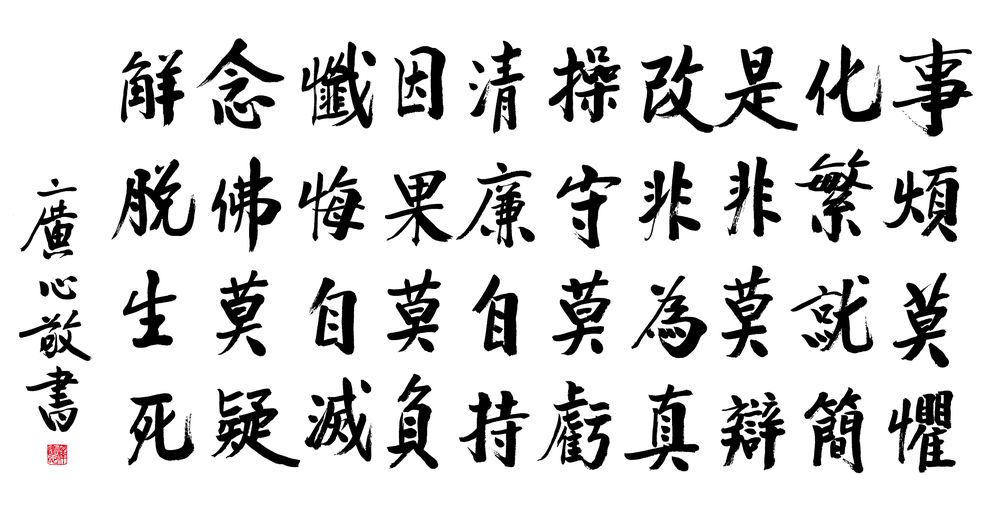 事煩莫懼
化繁就簡
是非莫辯
改非為真
操守莫虧
清廉自持
因果莫負
懺悔自滅
念佛莫疑
解脫生死
廣心敬書